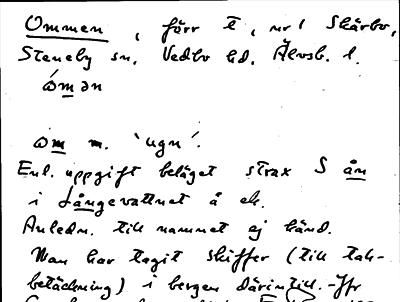 Ommen, förr t, nr 1 Skårbo,
Steneby sn. Vedbo hd. Älvsb. l.
ómən
ωm m. 'ugn'.
Enl. uppgift beläget strax S ån
i Långevattnet å ek.
Anledn. till namnet ej känd.
Man har tagit skiffer (till tak-
betäckning) i bergen därintill. - Jfr